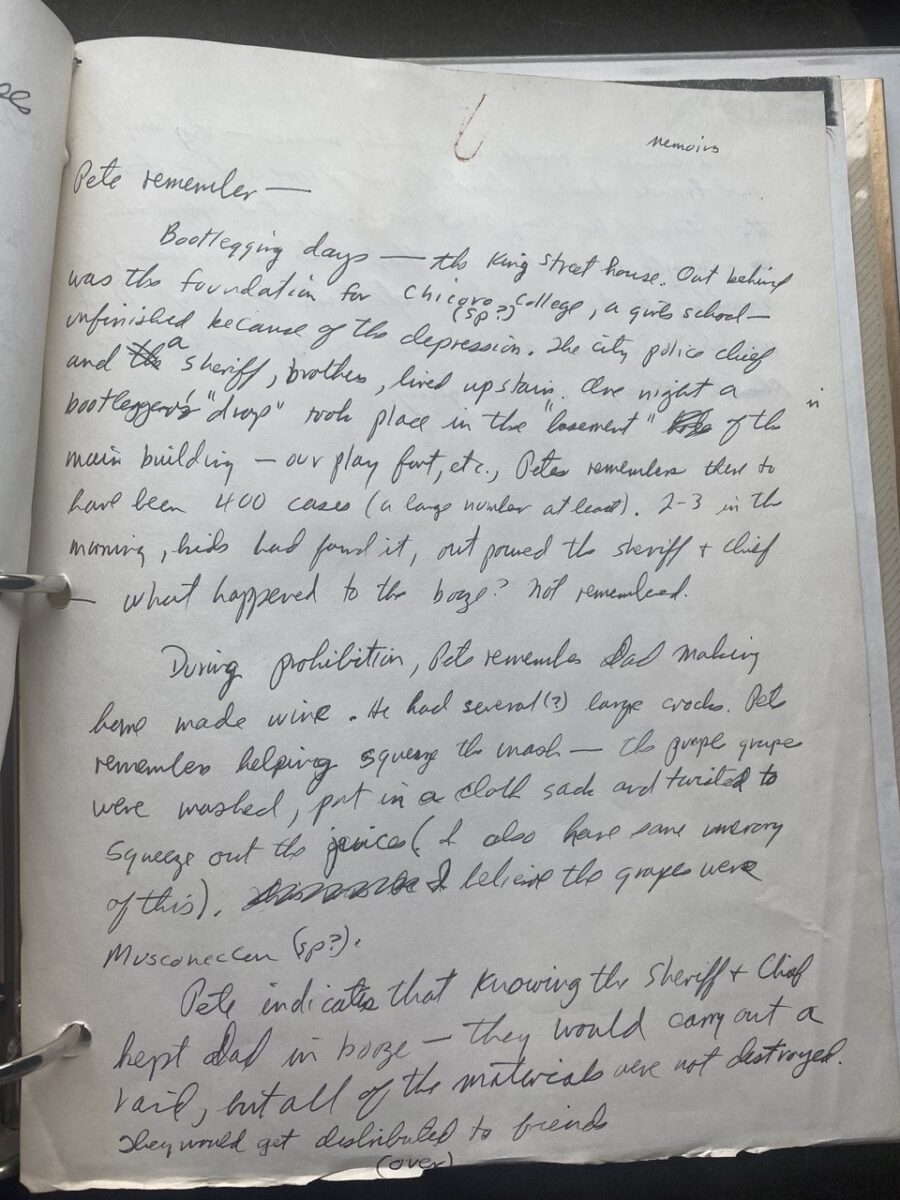 memoirs
Pete remember —
Bootlegging days — the King Street house. Out behind
was the foundation for Chicoro (sp?) College, a girls school—
unfinished because of the depression. The city police chief
and a sheriff, brothers, lived upstairs. One night a
bootlegger's "drop" took place in the "basement" of the
main building — our play fort, etc., Pete remembers there to
have been 400 cases (a large number at least). 2-3 in the
morning, kids had found it, out poured the sheriff + chief
— what happened to the booze? Not remembered.
During prohibition, Pete remembers Dad making
home made wine. He had several(?) large crocks. Pete
remembers helping squeeze the mash — the purple grapes
were washed, put in a cloth sack and twisted to
squeeze out the juices (I also have some memory
of this). I believe the grapes were
Musconeccan (sp?).
Pete indicates that knowing the Sheriff + Chief
kept Dad in booze — they would carry out a
raid, but all of the materials were not destroyed.
They would get distributed to friends
(over)